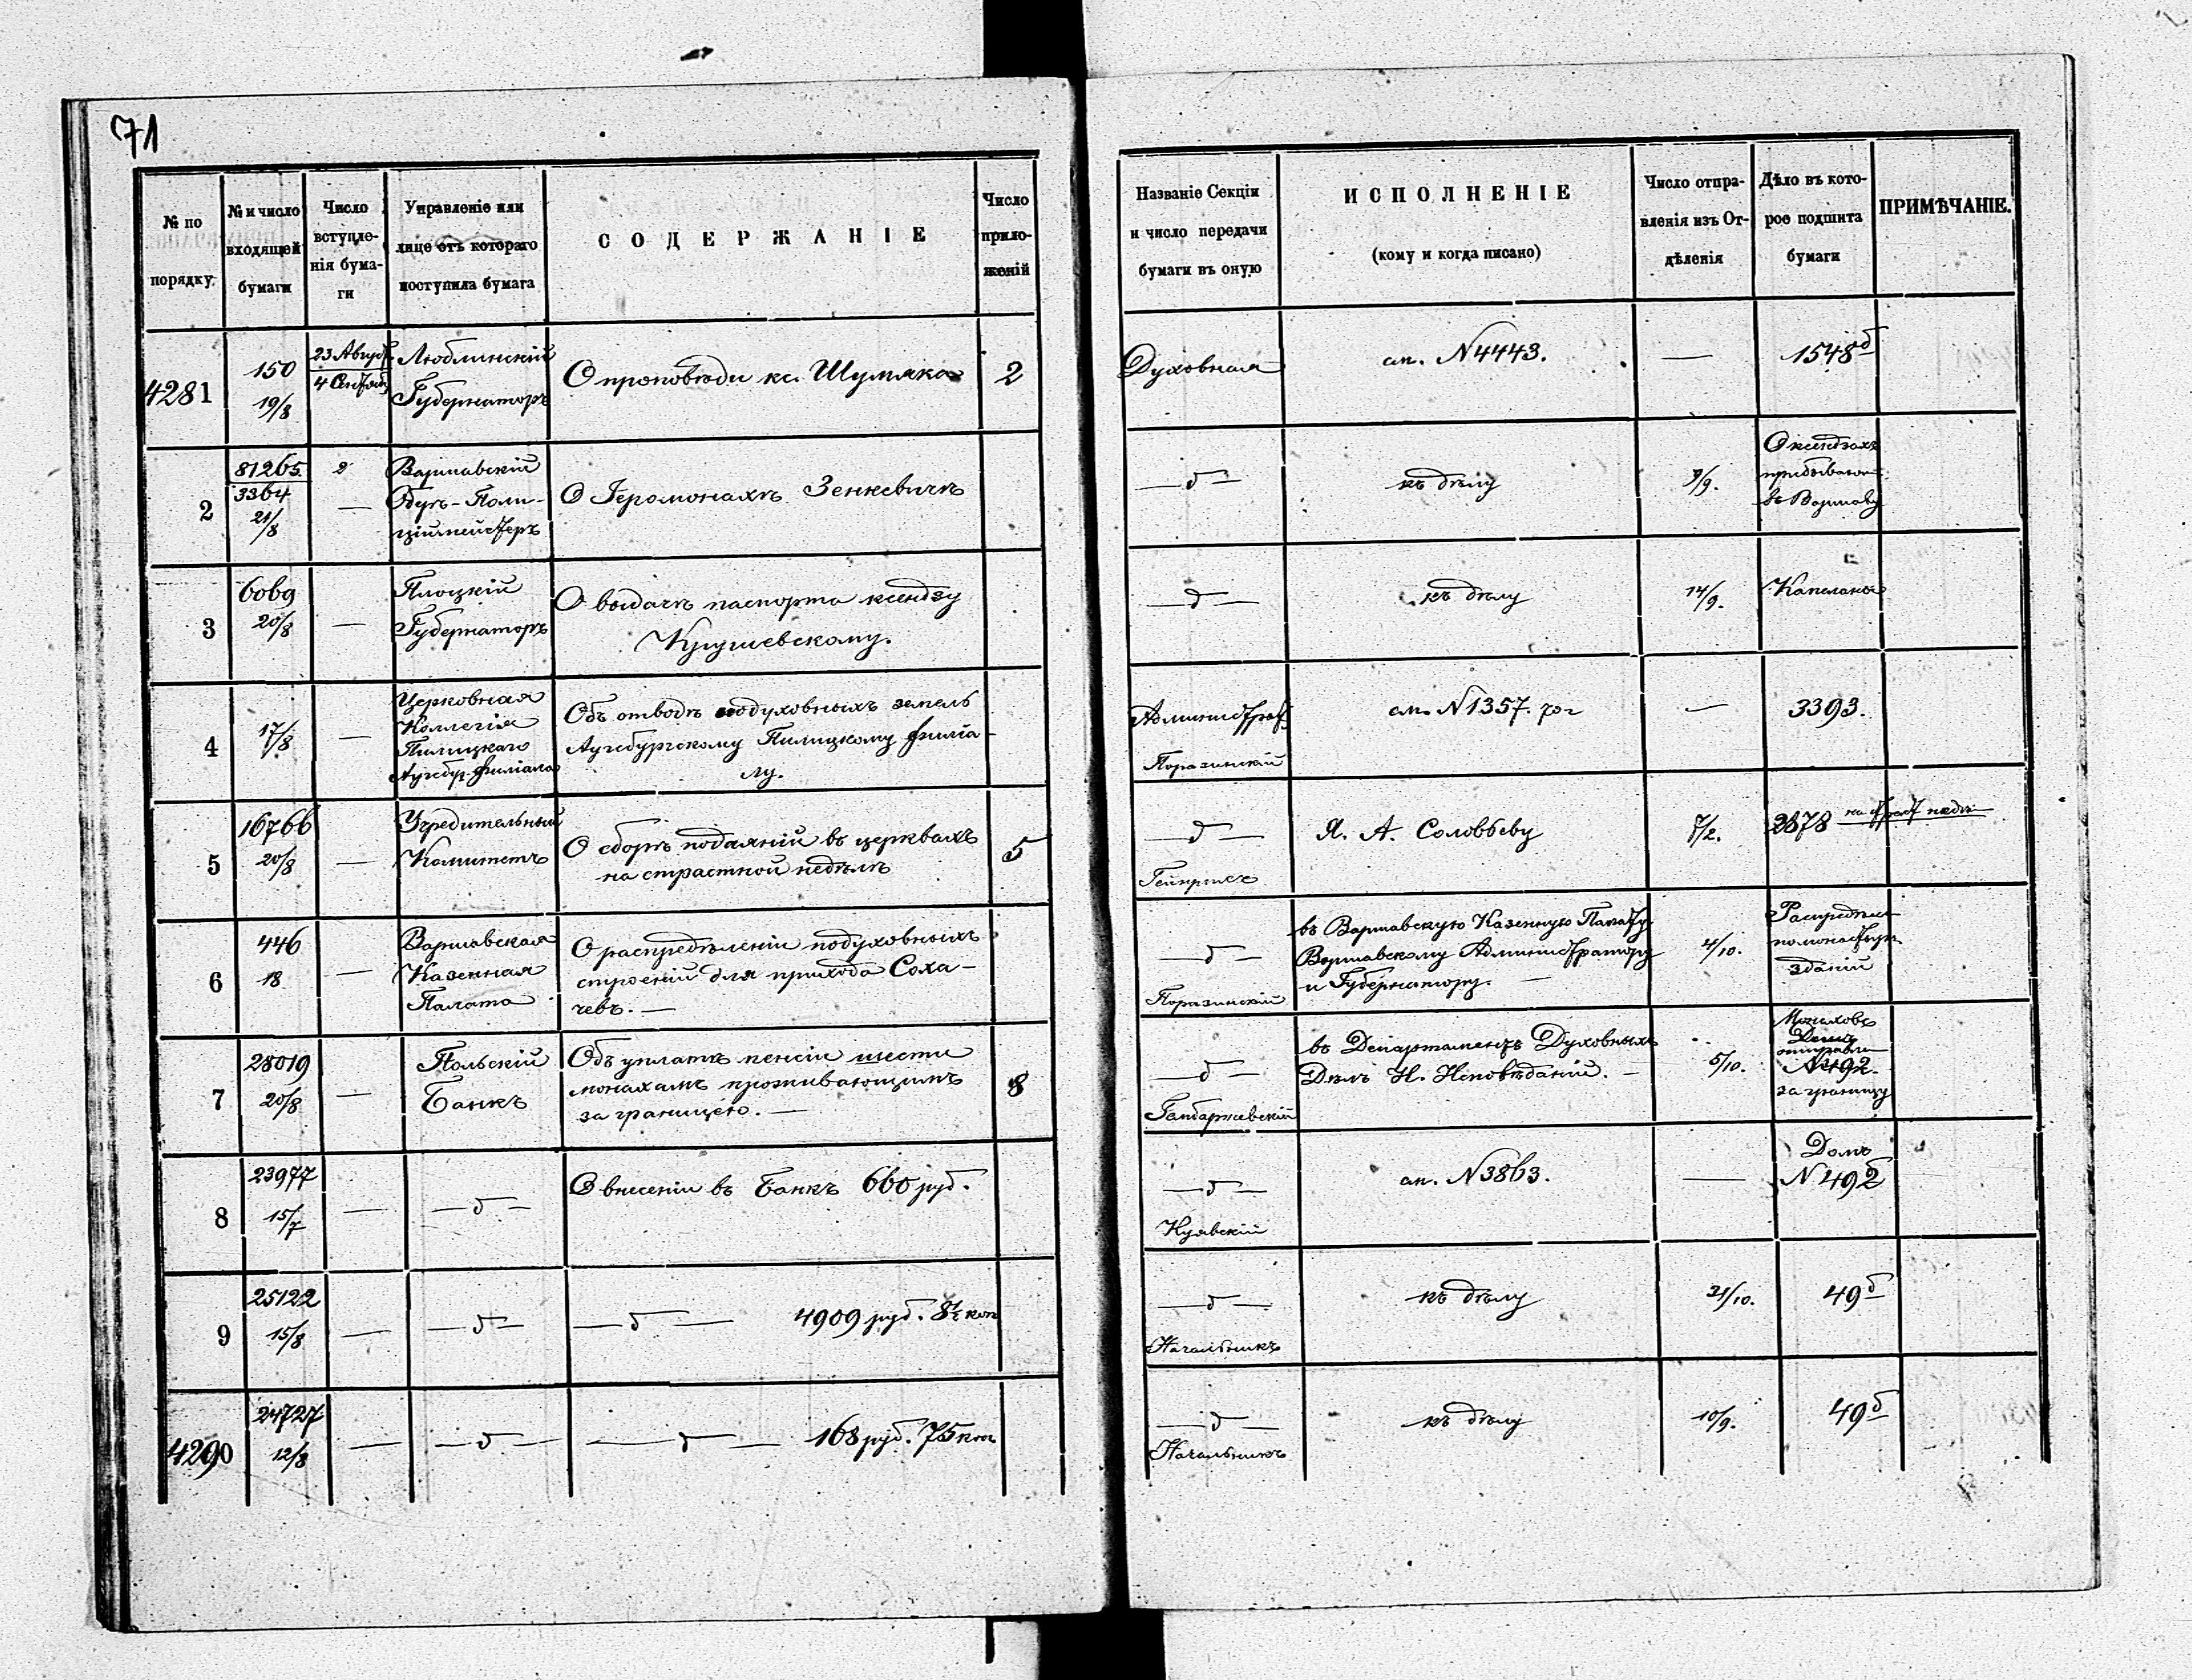 71
№ по
порядку
№ и число
входящей
бумаги
Число
вступле-
нія бума-
ги
Управленіе или
лице отъ котораго
поступила бумага
СОДЕРЖАНІЕ
Число
прило-
женій
Названіе Секціи
и число передачи
бумаги въ оную
ИСПОЛНЕНІЕ
(кому и когда писано)
Число отпра-
вленія изъ От-
дѣленія
Дѣло въ кото-
рое подшита
бумаги
ПРИМѢЧАНІЕ.
4281
150
19/8
23 Август
4 Сентяб
Люблинскій
Губернаторъ
О проповѣди кс. Шумяка
2
Духовная
см. N 4443.
—
1548б
2
81265
3364
21/8
—
Варшавскій
Оберъ-Поли-
ціймейстеръ
О Іеромонахѣ Зенкевичѣ
— д —
къ дѣлу
9/9.
О ксендзахъ
прибывающ
въ Варшаву
3
6069
20/8
—
Плоцкій
Губернаторъ
О выдачѣ паспорта ксендзу
Кушевскому.
— д —
къ дѣлу
14/9.
Капеланы
4
17/8
—
Церковная
Коллегія
Пилицкаго
Аугсбур. филіала
Объ отводѣ подуховныхъ земель
Аугсбургскому Пилицкому филіа-
лу.
Администрат
Поразинскій
см. N 1357.
—
3393.
5
16766
20/8
—
Учредительный
Комитетъ
О сборѣ подаяній въ церквахъ
на страстной недѣлѣ
5
— д —
Гейнрихъ
Я. А. Соловьеву
7/2.
2878 на страст недѣ
6
446
18
—
Варшавская
Казенная
Палата
О распредѣленіи подуховныхъ
строеній для прихода Соха-
чевъ. —
— д —
Поразинскій
въ Варшавскую Казенную Палату
Варшавскому Администратору
и Губернатору. —
4/10.
Распредѣлен
помонастыр
зданій
7
28019
20/8
—
Польскій
Банкъ
Объ уплатѣ пенсіи шести
монахамъ проживающимъ
за границею. —
8
— д —
Гамбаржевскій
въ Департаментъ Духовныхъ
Дѣлъ И. Исповѣданій. —
5/10.
Монаховъ
отправлен
за границу
8
23977
15/7
—
— д —
О внесеніи въ Банкъ 660 руб.
— д —
Куявскій
см. N 3863.
—
Домъ
N 492
9
25122
15/8
—
— д —
— д — 4909 руб. 8½ коп
— д —
Начальникъ
къ дѣлу
21/10.
49б
4290
24727
12/8
—
— д —
— д — 168 руб. 75 коп
— д —
Начальникъ
къ дѣлу
10/9.
49б